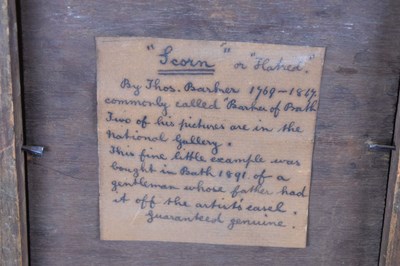 "Scorn" or "Hatred."
By Thos. Barker 1769-1847
commonly called "Barker of Bath
Two of his pictures are in the
National Gallery.
This fine little example was
bought in Bath 1891. of a
gentleman whose father had
it off the artist's easel.
Guaranteed genuine.